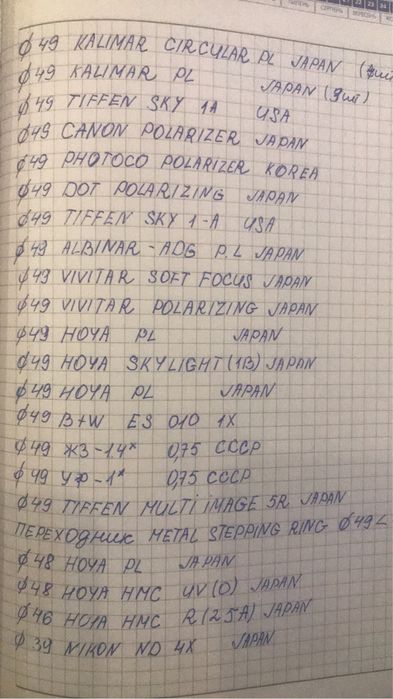 ø 49 KALIMAR CIRCULAR PL JAPAN
ø 49 KALIMAR PL JAPAN
ø 49 TIFFEN SKY 1A USA
ø 49 CANON POLARIZER JAPAN
ø 49 PHOTOCO POLARIZER KOREA
ø 49 DOT POLARIZING JAPAN
ø 49 TIFFEN SKY 1-A USA
ø 49 ALBINAR-ADG P.L JAPAN
ø 49 VIVITAR SOFT FOCUS JAPAN
ø 49 VIVITAR POLARIZING JAPAN
ø 49 HOYA PL JAPAN
ø 49 HOYA SKYLIGHT (1B) JAPAN
ø 49 HOYA PL JAPAN
ø 49 B+W ES 010 1X
ø 49 ЖЗ-1,4ˣ 0,75 СССР
ø 49 УФ-1ˣ 0,75 СССР
ø 49 TIFFEN MULTI IMAGE 5R JAPAN
ПЕРЕХОДНИК METAL STEPPING RING ø 49
ø 48 HOYA PL JAPAN
ø 48 HOYA HMC UV(O) JAPAN
ø 46 HOYA HMC R(25A) JAPAN
ø 39 NIKON ND 4X JAPAN